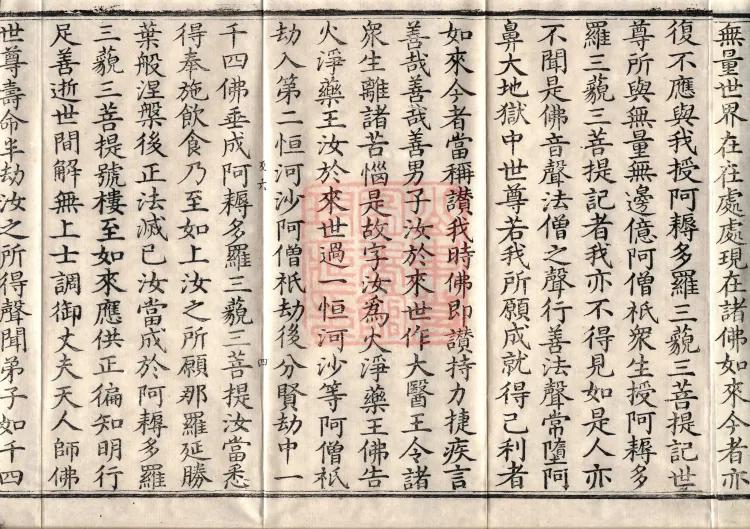 無量世界在在處處現在諸佛如來今者亦
復不應與我授阿耨多羅三藐三菩提記世
尊所與無量無邊億阿僧祇衆生授阿耨多
羅三藐三菩提記者我亦不得見如是人亦
不聞是佛音聲法僧之聲行善法聲常墮阿
鼻大地獄中世尊若我所願成就得己利者
如來今者當稱讃我時佛即讃持力捷疾言
善哉善哉善男子汝於來世作大醫王令諸
衆生離諸苦惱是故字汝爲火淨藥王佛告
火淨藥王汝於來世過一恒河沙等阿僧祇
劫入第二恒河沙阿僧祇劫後分賢劫中一
四
千四佛垂成阿耨多羅三藐三菩提汝當悉
得奉施飲食乃至如上汝之所願那羅延勝
葉般涅槃後正法滅已汝當成於阿耨多羅
三藐三菩提號樓至如來應供正徧知明行
足善逝世間解無上士調御丈夫天人師佛
世尊壽命半劫汝之所得聲聞弟子如千四